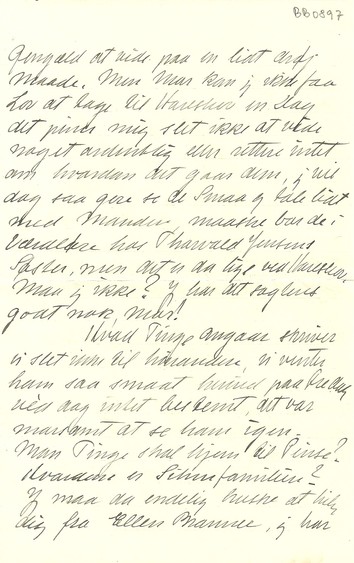 BB0897
Gengæld at vide paa en lidt drøj
maade. Men Mor kan jeg ikke faa
Lov at tage til Hareskov en Dag
det piner mig slet ikke at vide
noget ordentlig eller rettere intet
om hvordan det gaar dem, jeg vil
dog saa gere se de Smaa og tale lidt
med Manden, maaske bor de i
Værløse hos Thorvald Jensens
Søster, men det er da lige ved Hareskov.
Maa jeg ikke? I har det sagtens
godt nok, Mor!
Hvad Tinge angaar skriver
vi slet ikke til hinanden, vi venter
ham saa smaat herned paa Fredag
ved dog intet bestemt, det var
morsomt at se ham igen.
Mon Tinge skal hjem til Pinse?
Hvordan er Sibirfamilien?
Jeg maa da endelig huske at hilse
Dig fra Ellen, jeg har